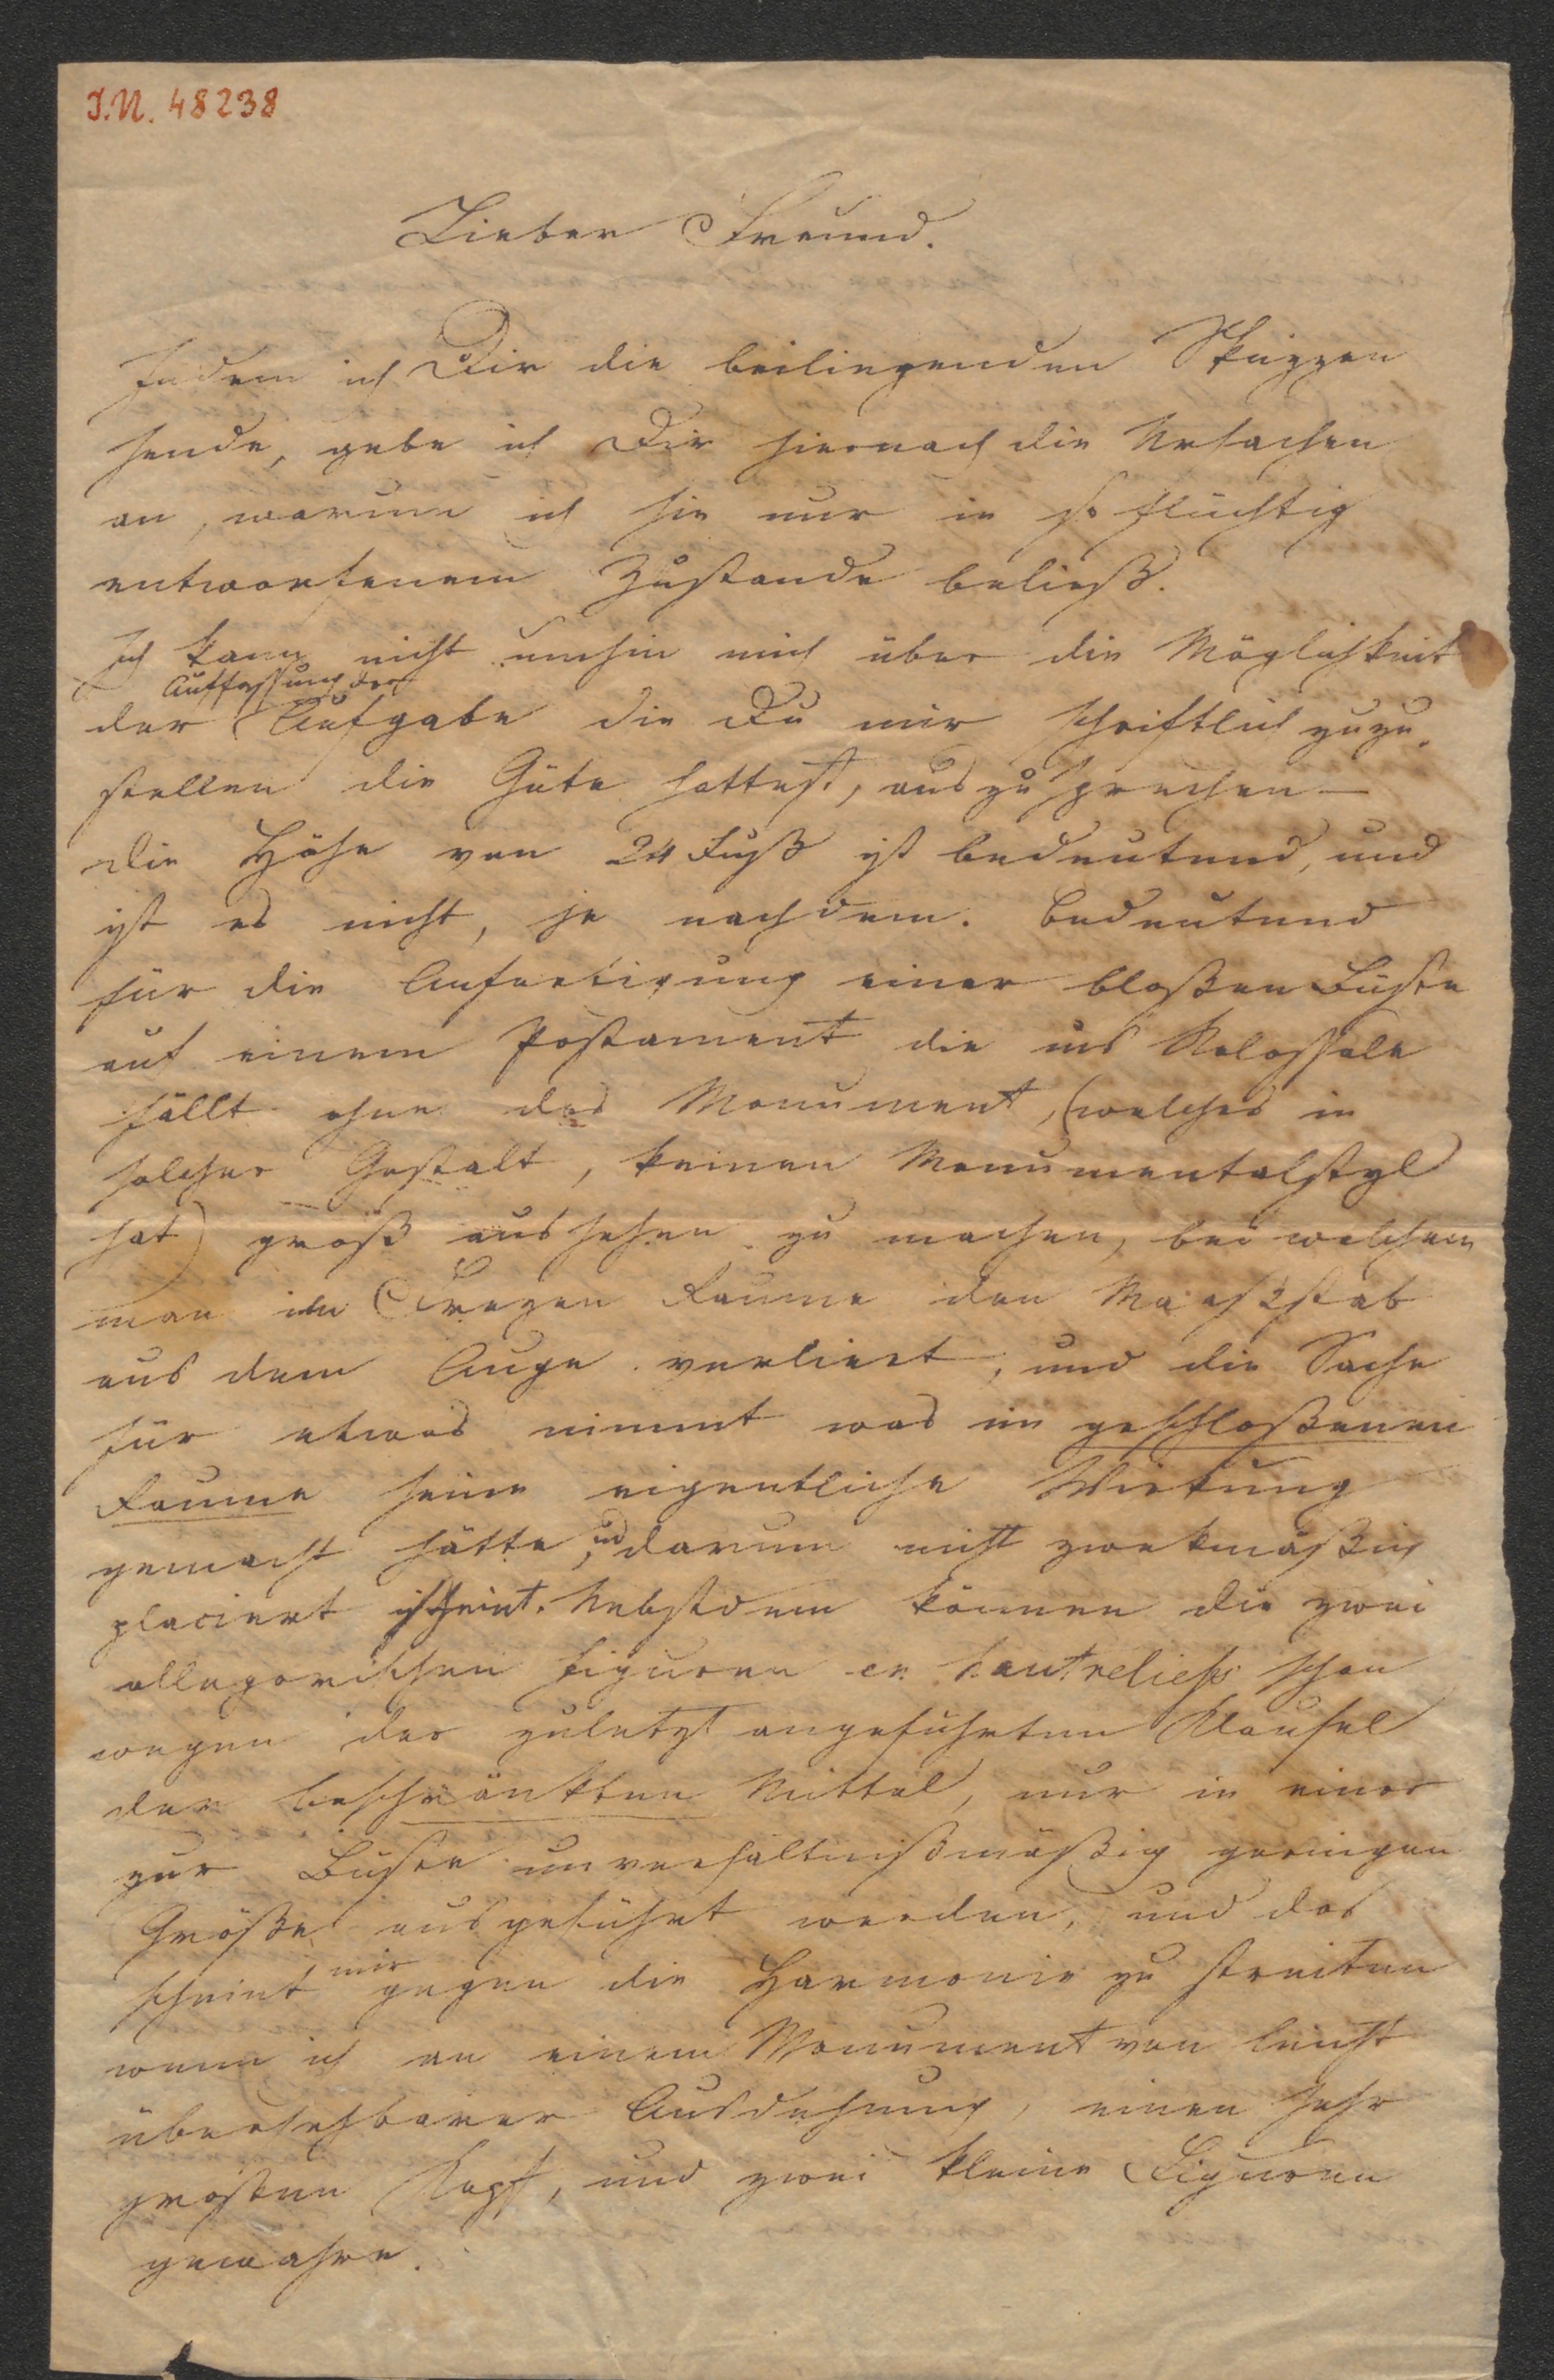 J.N. 48238
Lieber Freund.
Indem ich Dir die beiliegenden Skizzen
sende, gebe ich Dir hiernach die Ursachen
an, warum ich sie nur in so flüchtig
entworfenem Zustande beließ.
Ich kann nicht umhin mich über die Möglichkeit
Auffassung der
der Aufgabe die Du mir schriftlich zuzu-
stellen die Güte hattest, auszusprechen –
die Höhe von 24 Fuß ist bedeutend, und
ist es nicht, je nachdem. Bedeutend
für die Anfertigung einer bloßen Büste
auf einem Postament die ins Kolossale
fällt ohne das Monument, (welches in
solcher Gestalt, keinen Monumentalstyl
hat) groß aussehen zu machen, bei welchem
man im Raume den Maaßstab
aus dem Auge verliert, und die Sache
für etwas nimmt was im geschloßenen
Raume seine eigentliche Wirkung
gemacht hätte, und darum nicht zwekmäßig
placiert scheint. Nebstdem können die zwei
allegorischen Figuren en hautreliefs schon
wegen der zuletzt angeführten Klausel
der beschränkten Mittel, nur in einer
zur Büste unverhältnißmäßig geringen
Größe ausgeführt werden, und das
scheint mir gegen die Harmonie zu streiten
wenn ich an einem Monument von leicht
übersehbarer Ausdehnung, einen sehr
großen Kopf, und zwei kleine Figuren
gewahre.